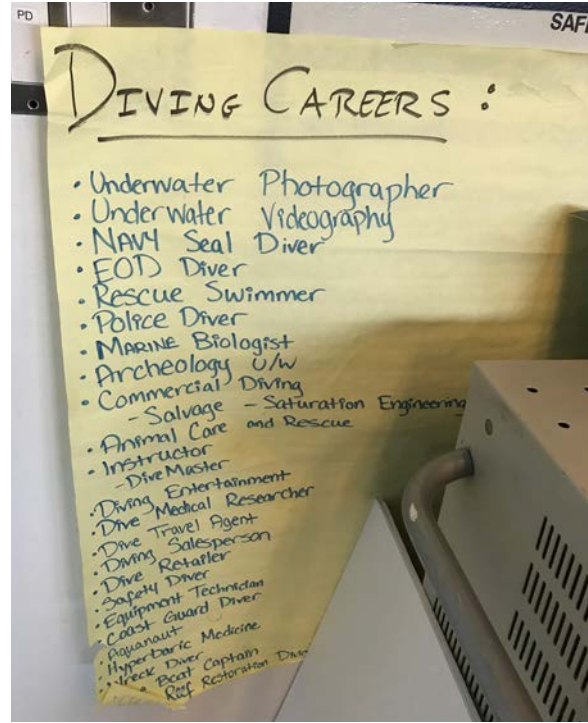 PD
SAF
DIVING CAREERS :
• Underwater Photographer
• Underwater Videography
• NAVY Seal Diver
• EOD Diver
• Rescue Swimmer
• Police Diver
• MARINE Biologist
• Archeology U/W
• Commercial Diving
- Salvage - Saturation Engineering
• Animal Care and Rescue
• Instructor
- Dive Master
• Diving Entertainment
• Dive Medical Researcher
• Dive Travel Agent
• Diving Salesperson
• Dive Retailer
• Safety Diver
• Equipment Technician
• Coast Guard Diver
• Aquanaut
• Hyperbaric Medicine
• Wreck Diver
Boat Captain
Reef Restoration